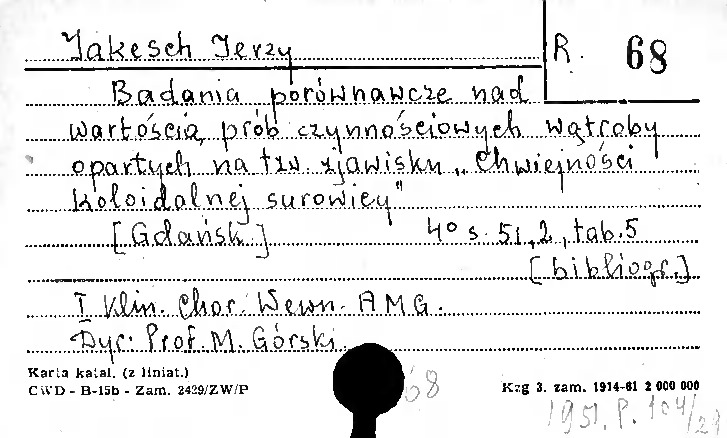 Jakesch Jerzy
R. 68
Badania porównawcze nad
wartością prób czynnościowych wątroby
opartych na tzw. zjawisku „Chwiejności
koloidalnej surowicy"
[Gdańsk] 4° s. 51, 2, tab. 5
[bibliogr.]
I Klin. Chor. Wewn. AMG.
Dyr: Prof. M. Górski.
Karta katal. (z liniat.)
CWD - B-15b - Zam. 2429/ZW/P
68
Kzg 3. zam. 1914-61 2 000 000
1951. P. 104/29